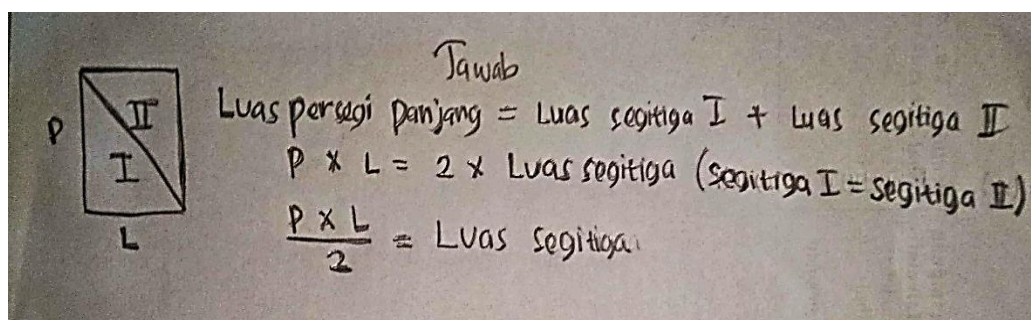 Jawab
P
II
I
L
Luas persegi panjang = Luas segitiga I + Luas segitiga II
P x L = 2 x Luas segitiga (segitiga I = segitiga II)
P x L
2
= Luas segitiga